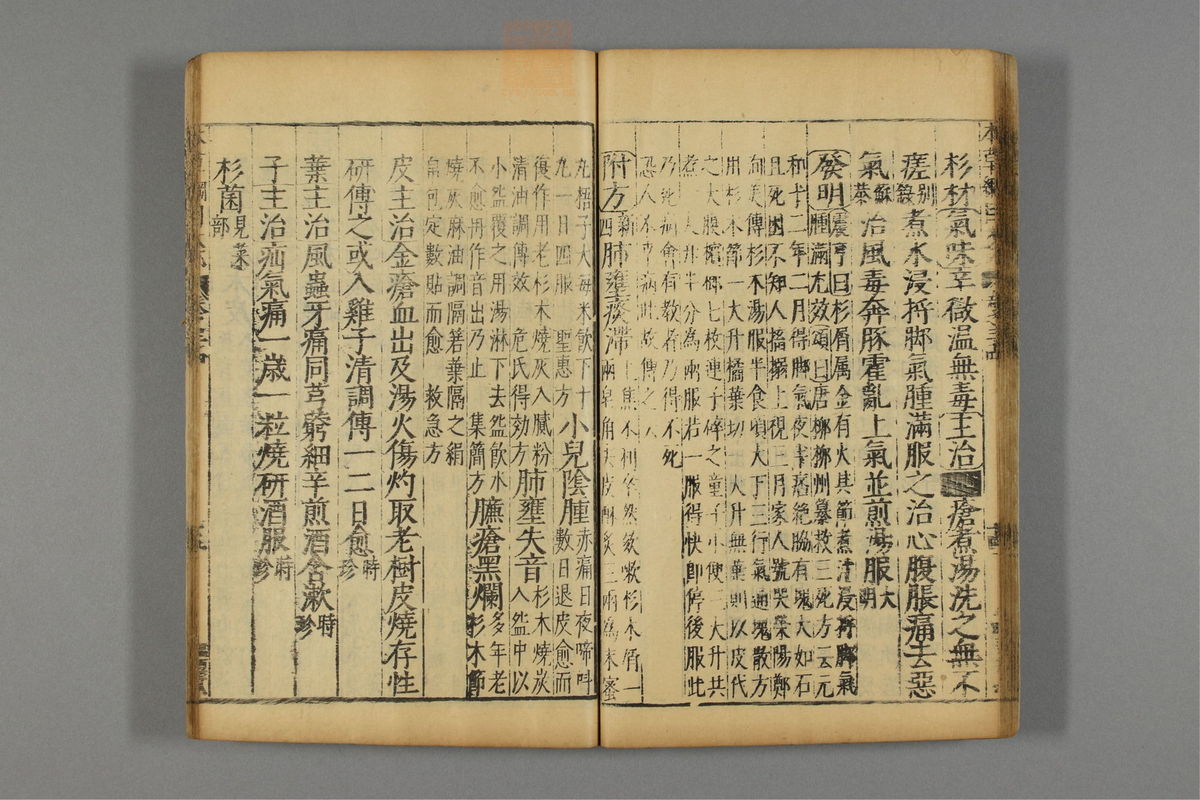 杉材氣味辛微温無毒主治瘡煮湯洗之無不
瘥别錄煮水浸捋脚氣腫滿服之治心腹脹痛去惡
氣蘇恭治風毒奔豚霍亂上氣並煎湯服大明
發明震亨曰杉屑属金有火其節煮汁浸捋脚氣
腫滿尤效頌曰唐柳柳州纂救三死方云元
和十二年二月得脚氣夜半痞絶脇有塊大如石
且死困不知人搐搦上視三日家人號哭滎陽鄭
洵美傳杉木湯服半食頃大下三行氣通塊散方
用杉木節一大升橘葉切一大升無葉則以皮代
之大腹檳榔七枚連子碎之童子小便三大升共
煮一大升半分為兩服若一服得快即停後服此
乃死病會有教者乃得不死
恐人不幸病此故傳之
附方新四肺壅痰滯上焦不利卒然欬嗽杉木屑一
兩皂角去皮酥炙三兩為末蜜
丸梧子大每米飲下十
丸一日四服 聖惠方小兒陰腫赤痛日夜啼叫
數日退皮愈而
復作用老杉木燒灰入膩粉
清油調傅效 危氏得効方肺壅失音杉木燒炭
入盌中以
小盌覆之用湯淋下去盌飲水
不愈再作音出乃止 集簡方臁瘡黑爛多年老
杉木節
燒灰麻油調隔箬葉隔之絹
帛包定數貼而愈 救急方
皮主治金瘡血出及湯火傷灼取老樹皮燒存性
研傅之或入雞子清調傅一二日愈時珍
葉主治風蟲牙痛同芎藭細辛煎酒含漱時珍
子主治疝氣痛一歳一粒燒研酒服時珍
杉菌見菜部